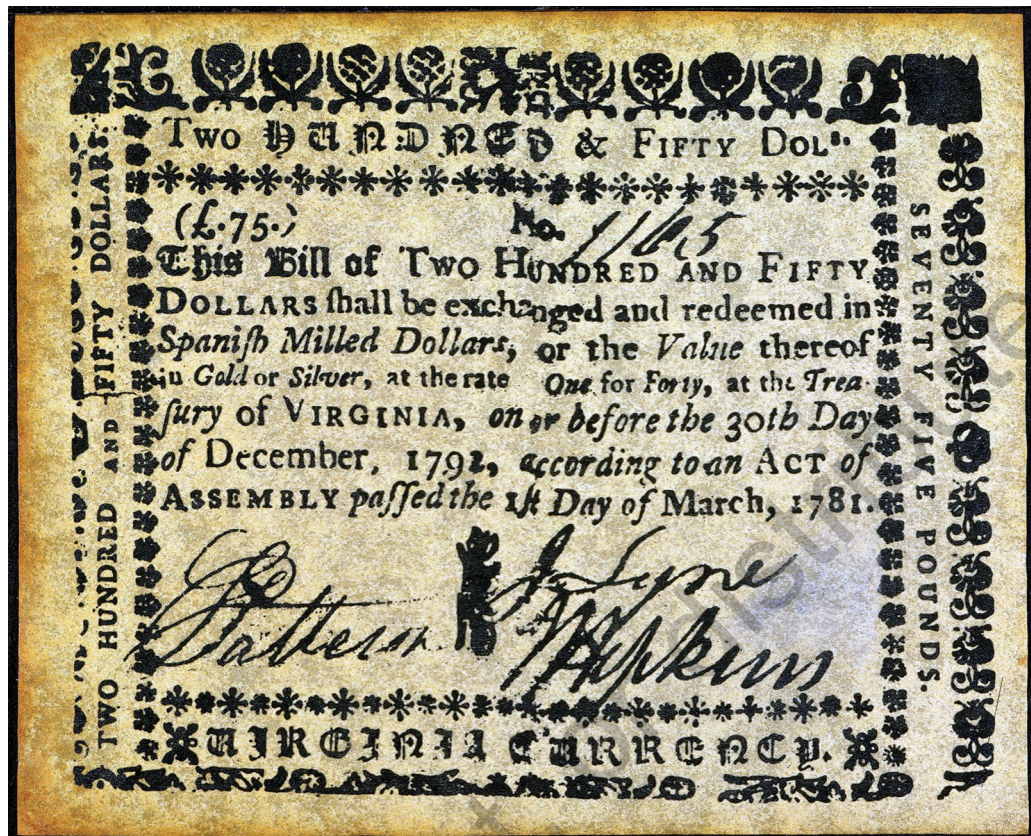 Two HUNDRED & FIFTY DOLrs
(£.75.) No. 1165
This Bill of Two HUNDRED AND FIFTY
DOLLARS ſhall be exchanged and redeemed in
Spaniſh Milled Dollars, or the Value thereof
in Gold or Silver, at the rate One for Forty, at the Trea-
ſury of VIRGINIA, on or before the 30th Day
of December, 1792, according to an ACT of
ASSEMBLY paſſed the 1ſt Day of March, 1781.
J. Lyne
B Patteson
Hopkins
VIRGINIA CURRENCY.
TWO HUNDRED AND FIFTY DOLLARS.
SEVENTY FIVE POUNDS.